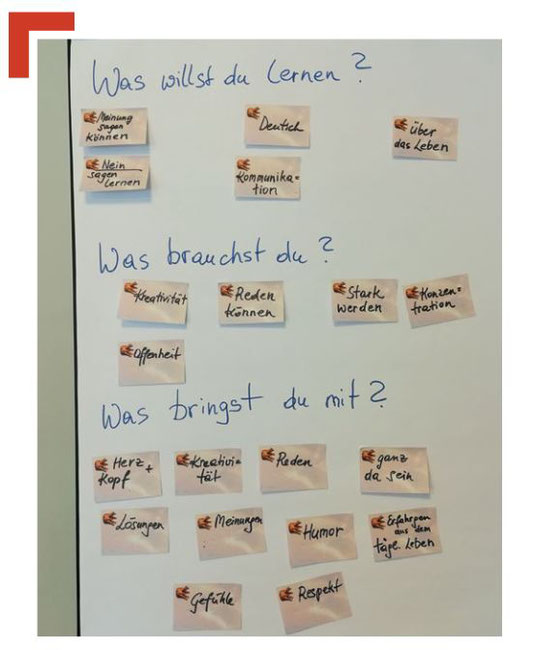 Was willst du lernen?
Meinung
sagen
können
Deutsch
über
das Leben
Nein
sagen
lernen
Kommunika=
tion
Was brauchst du?
Kreativität
Reden
können
Stark
werden
Konzen=
tration
Offenheit
Was bringst du mit?
Herz +
Kopf
Kreativi=
tät
Reden
ganz
da sein
Lösungen
Meinungen
Humor
aus dem
tägl. Leben
Gefühle
Respekt